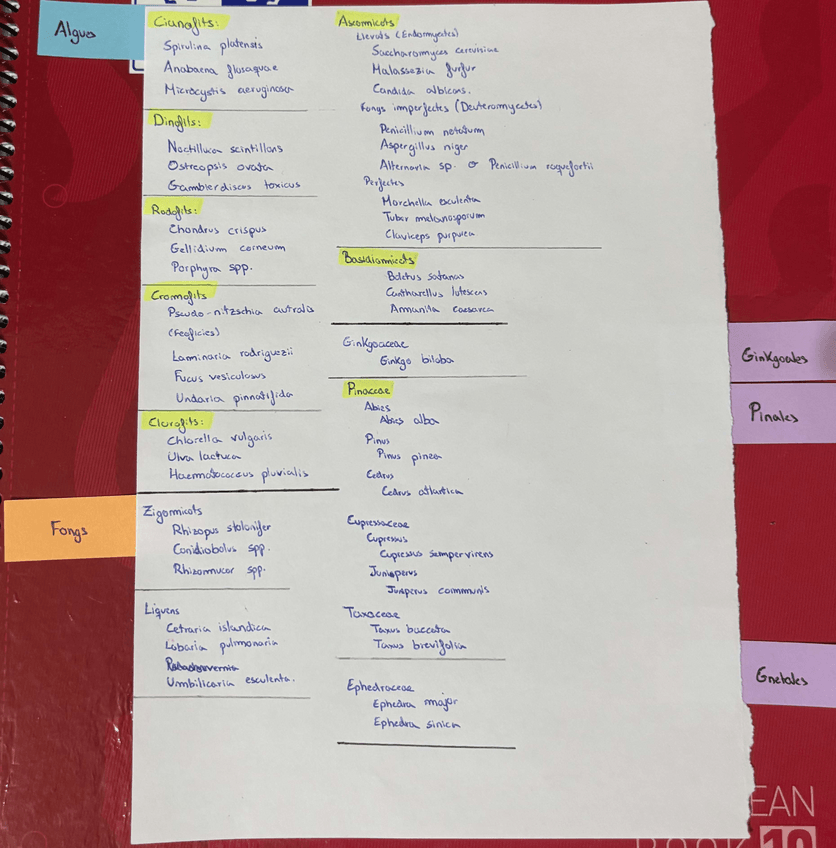 Algues
Cianofits:
Spirulina platensis
Anabaena flosaquae
Microcystis aeruginosa
Dinofits:
Noctiluca scintillans
Ostreopsis ovata
Gambierdiscus toxicus
Rodofits:
Chondrus crispus
Gellidium corneum
Porphyra spp.
Cromofits
Pseudo-nitzschia autralis
(feofícies)
Laminaria rodriguezii
Fucus vesiculosus
Undaria pinnatifida
Clorofits:
Chlorella vulgaris
Ulva lactuca
Haematococcus pluvialis
Fongs
Zigomicots
Rhizopus stolonifer
Conidiobolus spp.
Rhizomucor spp.
Líquens
Cetraria islandica
Lobaria pulmonaria
Umbilicaria esculenta.
Ascomicots
Llevats (Endomycetes)
Saccharomyces cerevisiae
Malassezia furfur
Candida albicans.
Fongs imperfectes (Deuteromycetes)
Penicillium notatum
Aspergillus niger
Alternaria sp. o Penicillium roquefortii
Perfectes
Morchella esculenta
Tuber melanosporum
Claviceps purpurea
Basidiomicots
Boletus satanas
Cantharellus lutescens
Amanita caesarea
Ginkgoaceae
Ginkgo biloba
Pinaceae
Abies
Abies alba
Pinus
Pinus pinea
Cedrus
Cedrus atlantica
Cupressaceae
Cupressus
Cupressus sempervirens
Juniperus
Juniperus communis
Taxaceae
Taxus baccata
Taxus brevifolia
Ephedraceae
Ephedra major
Ephedra sinica
Ginkgoales
Pinales
Gnetales
EAN
BOOK 10